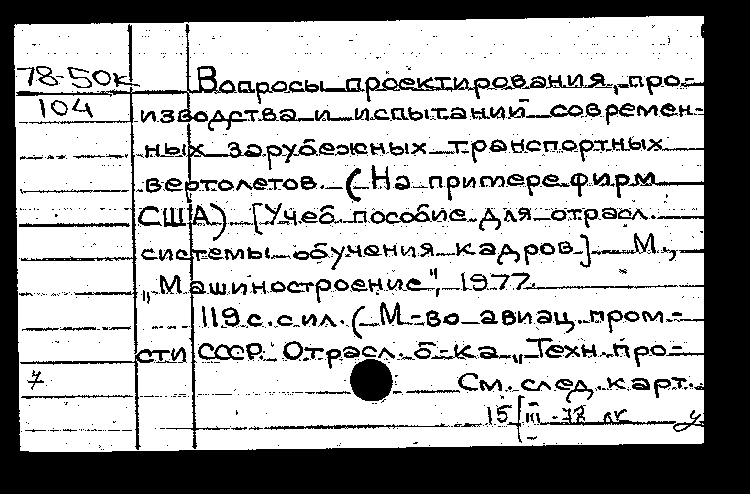 78-50к Вопросы проектирования, про-
104 изводства и испытаний современ-
ных зарубежных транспортных
вертолетов. (На примере фирм
США) [Учеб. пособие для отрасл.
системы обучения кадров]. М.,
„Машиностроение", 1977.
119 с. с ил. (М-во авиац. пром-
сти СССР. Отрасл. б-ка „Техн. про-
7 См. след. карт.
15/III-78 лк